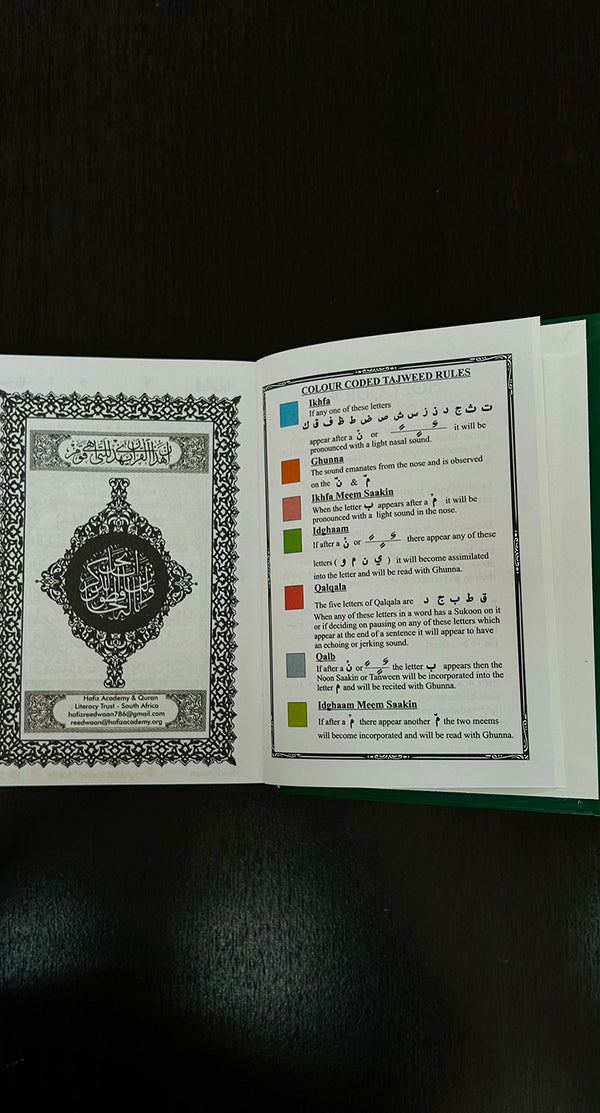 ان هذا القران يهدي للتي هي اقوم
Hafiz Academy & Quran
Literacy Trust - South Africa
hafizreedwaan786@gmail.com
reedwaan@hafizacademy.org
COLOUR CODED TAJWEED RULES
Ikhfa
If any one of these letters
ت ث ج د ذ ز س ش ص ض ط ظ ف ق ك
appear after a نْ or ـًـ ـٍـ ـٌـ it will be
pronounced with a light nasal sound.
Ghunna
The sound emanates from the nose and is observed
on the نّ & مّ
Ikhfa Meem Saakin
When the letter ب appears after a مْ it will be
pronounced with a light sound in the nose.
Idghaam
If after a نْ or ـًـ ـٍـ ـٌـ there appear any of these
letters ( ي ن م و ) it will become assimilated
into the letter and will be read with Ghunna.
Qalqala
The five letters of Qalqala are ق ط ب ج د
When any of these letters in a word has a Sukoon on it
or if deciding on pausing on any of these letters which
appear at the end of a sentence it will appear to have
an echoing or jerking sound.
Qalb
If after a نْ or ـًـ ـٍـ ـٌـ the letter ب appears then the
Noon Saakin or Tanween will be incorporated into the
letter م and will be recited with Ghunna.
Idghaam Meem Saakin
If after a مْ there appear another مّ the two meems
will become incorporated and will be read with Ghunna.